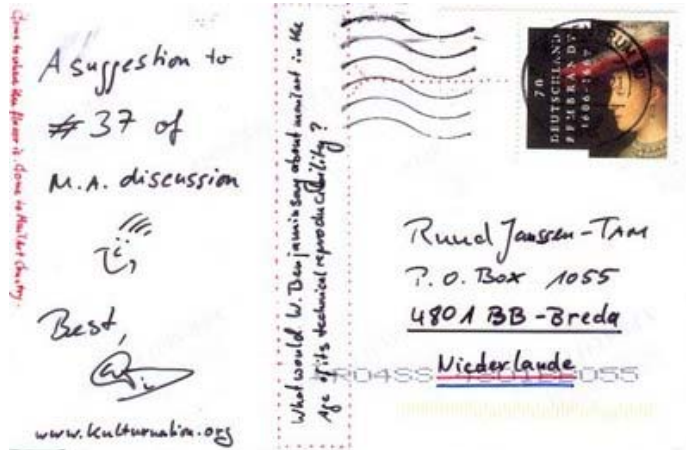 Come to where the flavor is. Come to Mailart Country.
A suggestion to
# 37 of
M.A. discussion
Best,
www.kulturnation.org
What would W. Benjamin say about mailart in the
Age of its technical reproducibility?
70
DEUTSCHLAND
REMBRANDT
1606-1669
Ruud Janssen-TAM
P.O. Box 1055
4801 BB - Breda
Niederlande